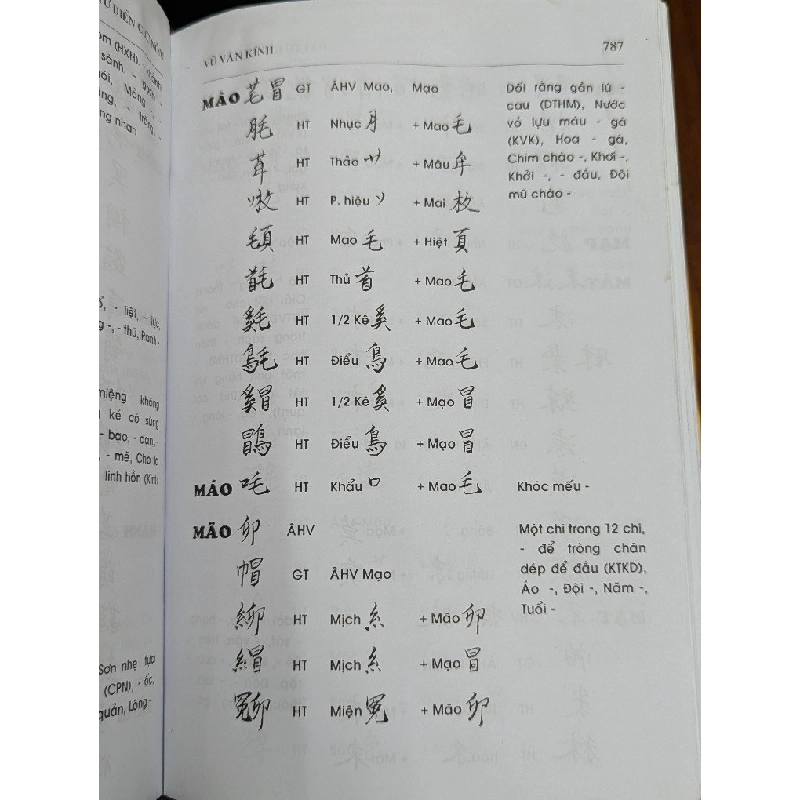 VŨ VĂN KÍNH 787
MÀO 芼冒 GT ÂHV Mao, Mạo
Dối rằng gần lú -
cau (DTHM), Nước
vỏ lựu máu - gà
(KVK), Hoa - gà,
Chim chào -, Khơi -,
Khởi -, - đầu, Đội
mũ chào -
HT Nhục 月 + Mao 毛
HT Thảo + Mâu 牟
HT P. hiệu + Mai 枚
HT Mao 毛 + Hiệt 頁
HT Thủ 首 + Mao 毛
HT 1/2 Kê 奚 + Mao 毛
HT Điểu 鳥 + Mao 毛
HT 1/2 Kê 奚 + Mạo 冒
HT Điểu 鳥 + Mạo 冒
MÁO 吒 HT Khẩu 口 + Mao 毛 Khóc mếu -
MÃO 卯 ÂHV
Một chi trong 12 chi,
- để tròng chân
dép để đầu (KTKD),
Áo -, Đội -, Năm -,
Tuổi -
帽 GT ÂHV Mạo
HT Mịch 糸 + Mão 卯
HT Mịch 糸 + Mạo 冒
HT Miện 冕 + Mão 卯
om (HXH), - bánh
sồng, -, trồng, -
ng nhan
- liệt, - lực,
ng -, - thú, Ranh -
miệng không
ké có sừng
- bao, - can, -
- mê, Cho lc
linh hồn (Kinh
Sơn nhẹ tựa
(CPN), - ốc,
quán, Lông -